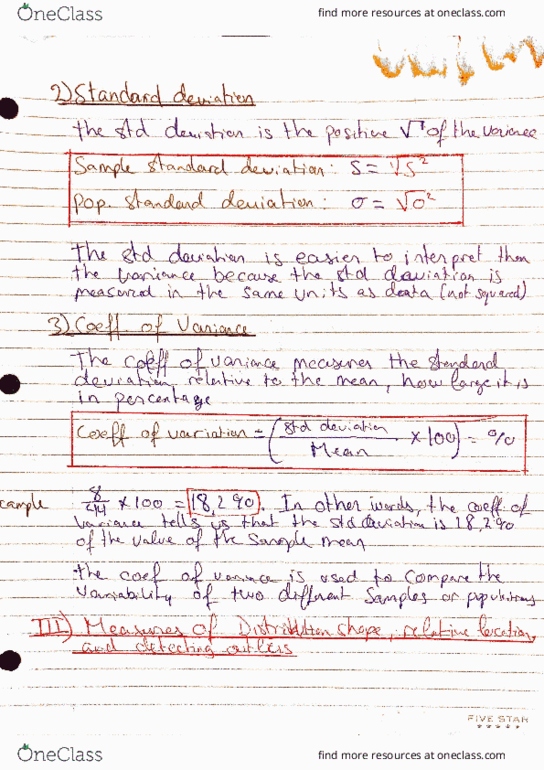 OneClass
find more resources at oneclass.com
2) Standard deviation
the std deviation is the positive √ of the variance
Sample standard deviation: s = √s²
Pop. standard deviation: σ = √σ²
The std deviation is easier to interpret then
the variance because the std deviation is
measured in the same units as data (not squared)
3) Coeff of Variance
The coeff of variance measures the standard
deviation relative to the mean, how large it is
in percentage
Coeff of variation = (std deviation / Mean × 100) = %
example 8/44 × 100 = 18,2%. In other words, the coeff of
variance tells us that the std deviation is 18,2%
of the value of the sample mean
the coef of variance is used to compare the
variability of two different samples or populations
III) Measures of Distribution shape, relative location,
and detecting outliers
FIVE STAR
OneClass
find more resources at oneclass.com